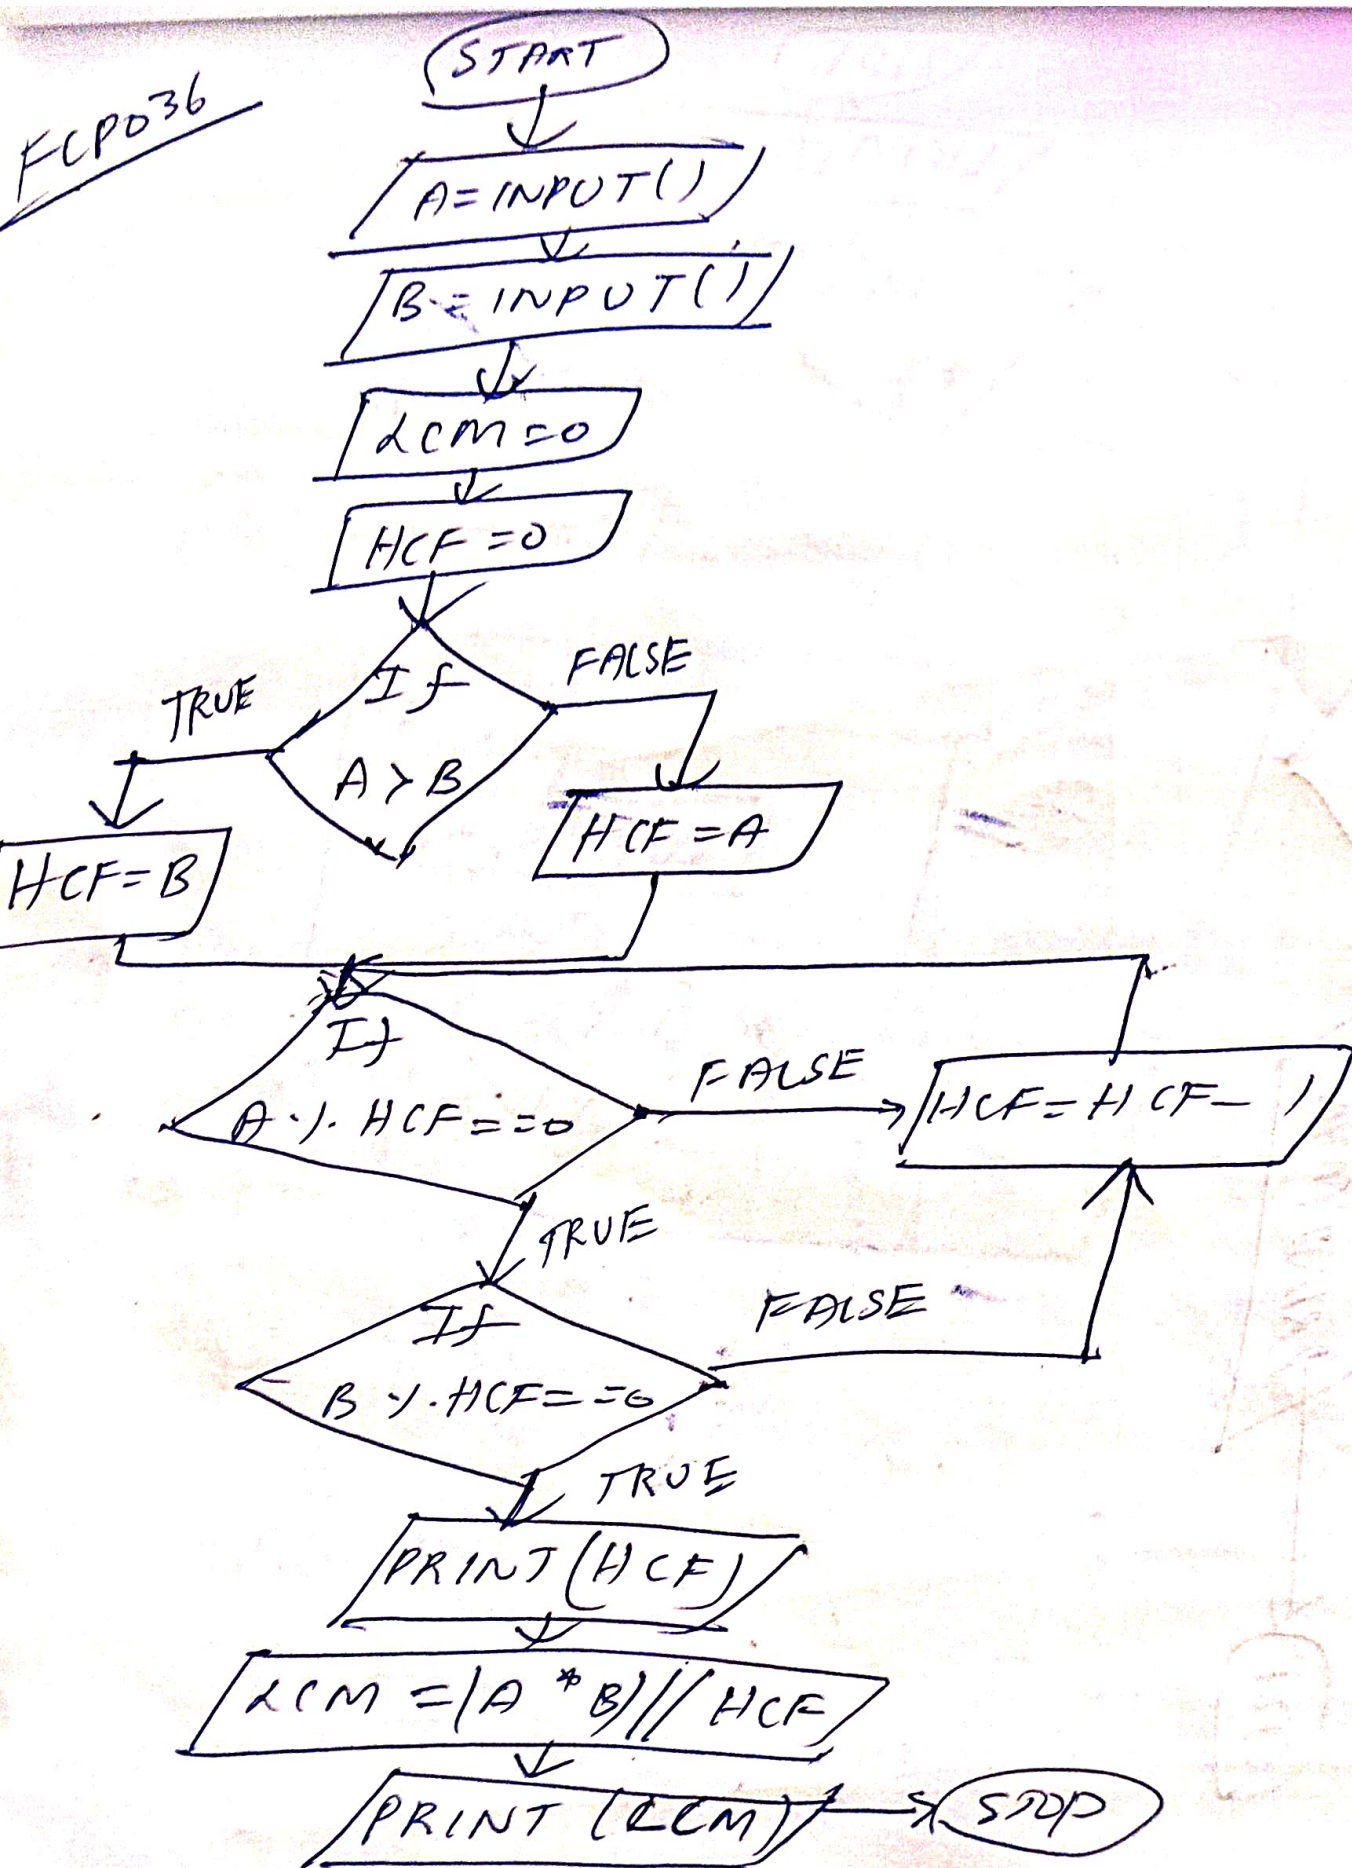 START
FCP036
A=INPUT()
B=INPUT()
LCM=0
HCF=0
If
A>B
TRUE
FALSE
HCF=B
HCF=A
If
A%HCF==0
FALSE
HCF=HCF-1
TRUE
If
B%HCF==0
FALSE
TRUE
PRINT(HCF)
LCM=(A*B)//HCF
PRINT(LCM)
STOP